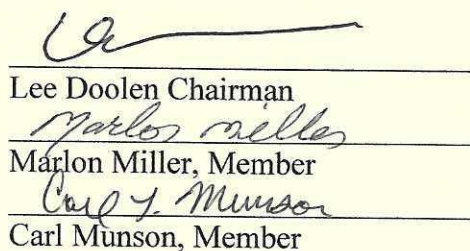 Lee Doolen Chairman
Marlon Miller
Marlon Miller, Member
Carl Y. Munson
Carl Munson, Member